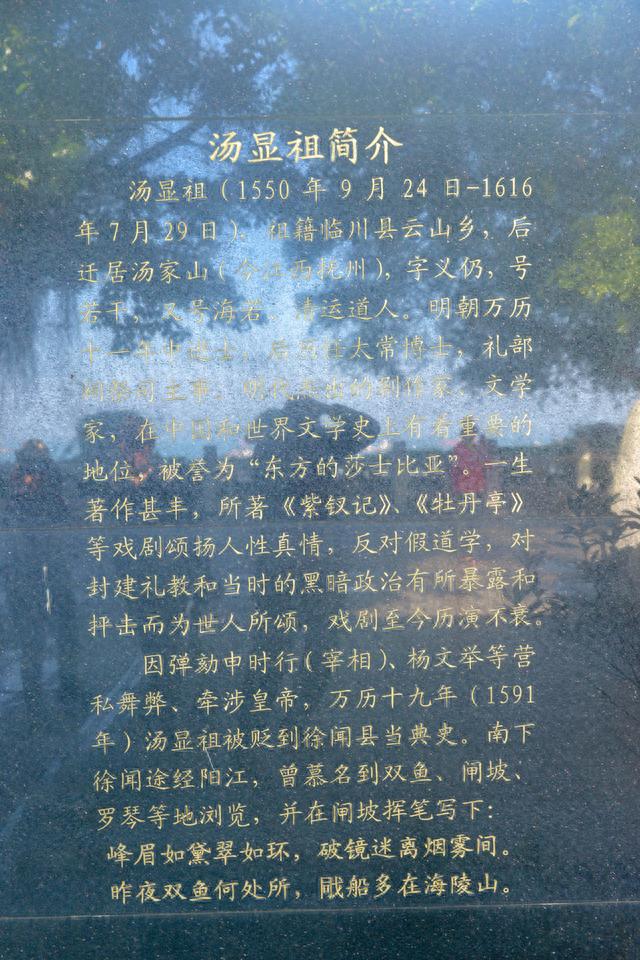 汤显祖简介
汤显祖(1550年9月24日-1616
年7月29日)，祖籍临川县云山乡，后
迁居汤家山(今江西抚州)，字义仍，号
若干，又号海若、清远道人。明朝万历
十一年中进士，后历任太常博士，礼部
祠祭司主事，明代杰出的剧作家，文学
家，在中国和世界文学史上有着重要的
地位，被誉为“东方的莎士比亚”。一生
著作甚丰，所著《紫钗记》、《牡丹亭》
等戏剧颂扬人性真情，反对假道学，对
封建礼教和当时的黑暗政治有所暴露和
抨击而为世人所颂，戏剧至今历演不衰。
因弹劾申时行(宰相)、杨文举等营
私舞弊、牵涉皇帝，万历十九年(1591
年)汤显祖被贬到徐闻县当典史。南下
徐闻途经阳江，曾慕名到双鱼、闸坡、
罗琴等地浏览，并在闸坡挥笔写下：
峰眉如黛翠如环，破镜迷离烟雾间。
昨夜双鱼何处所，戙船多在海陵山。